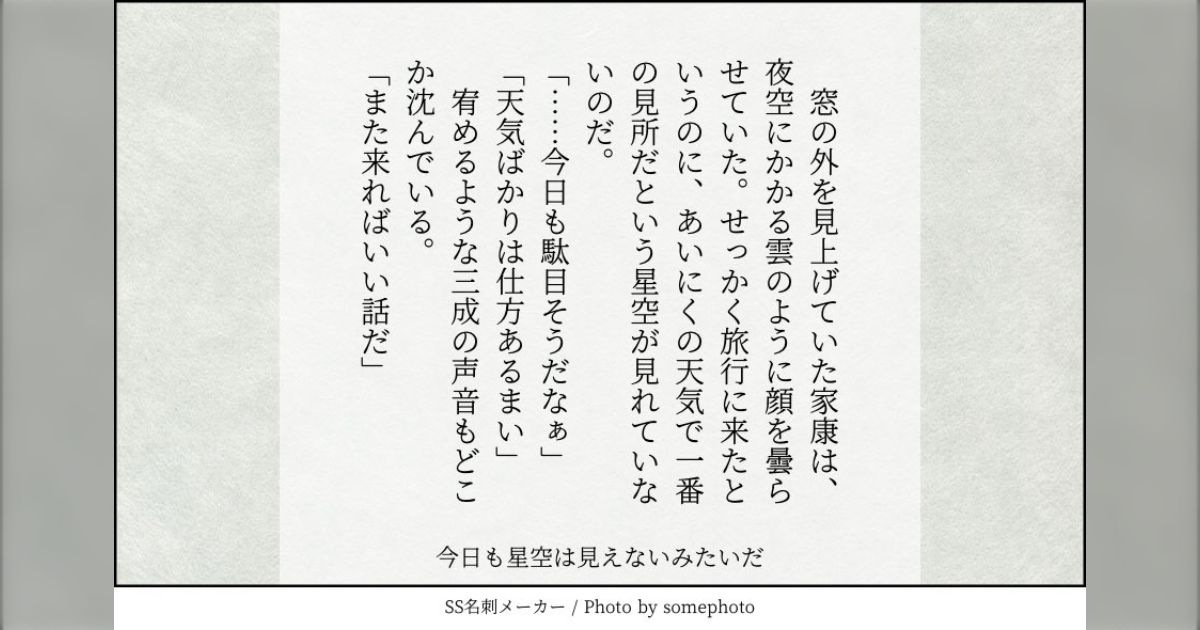 窓の外を見上げていた家康は、
夜空にかかる雲のように顔を曇ら
せていた。せっかく旅行に来たと
いうのに、あいにくの天気で一番
の見所だという星空が見れていな
いのだ。
「……今日も駄目そうだなぁ」
「天気ばかりは仕方あるまい」
　宥めるような三成の声音もどこ
か沈んでいる。
「また来ればいい話だ」
今日も星空は見えないみたいだ
SS名刺メーカー / Photo by somephoto